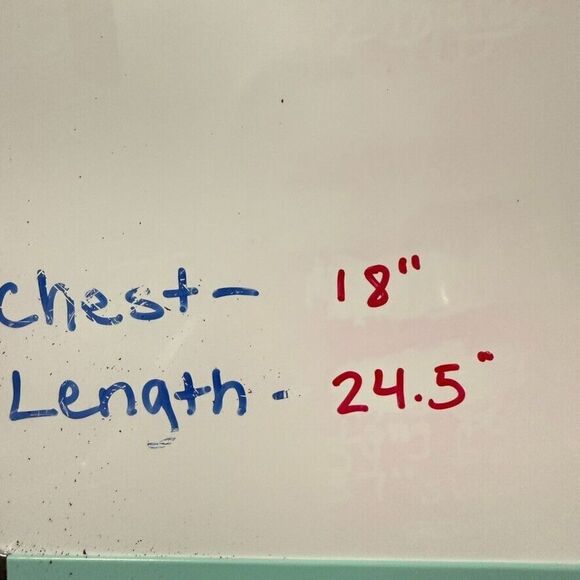 Chest- 18"
Length- 24.5"